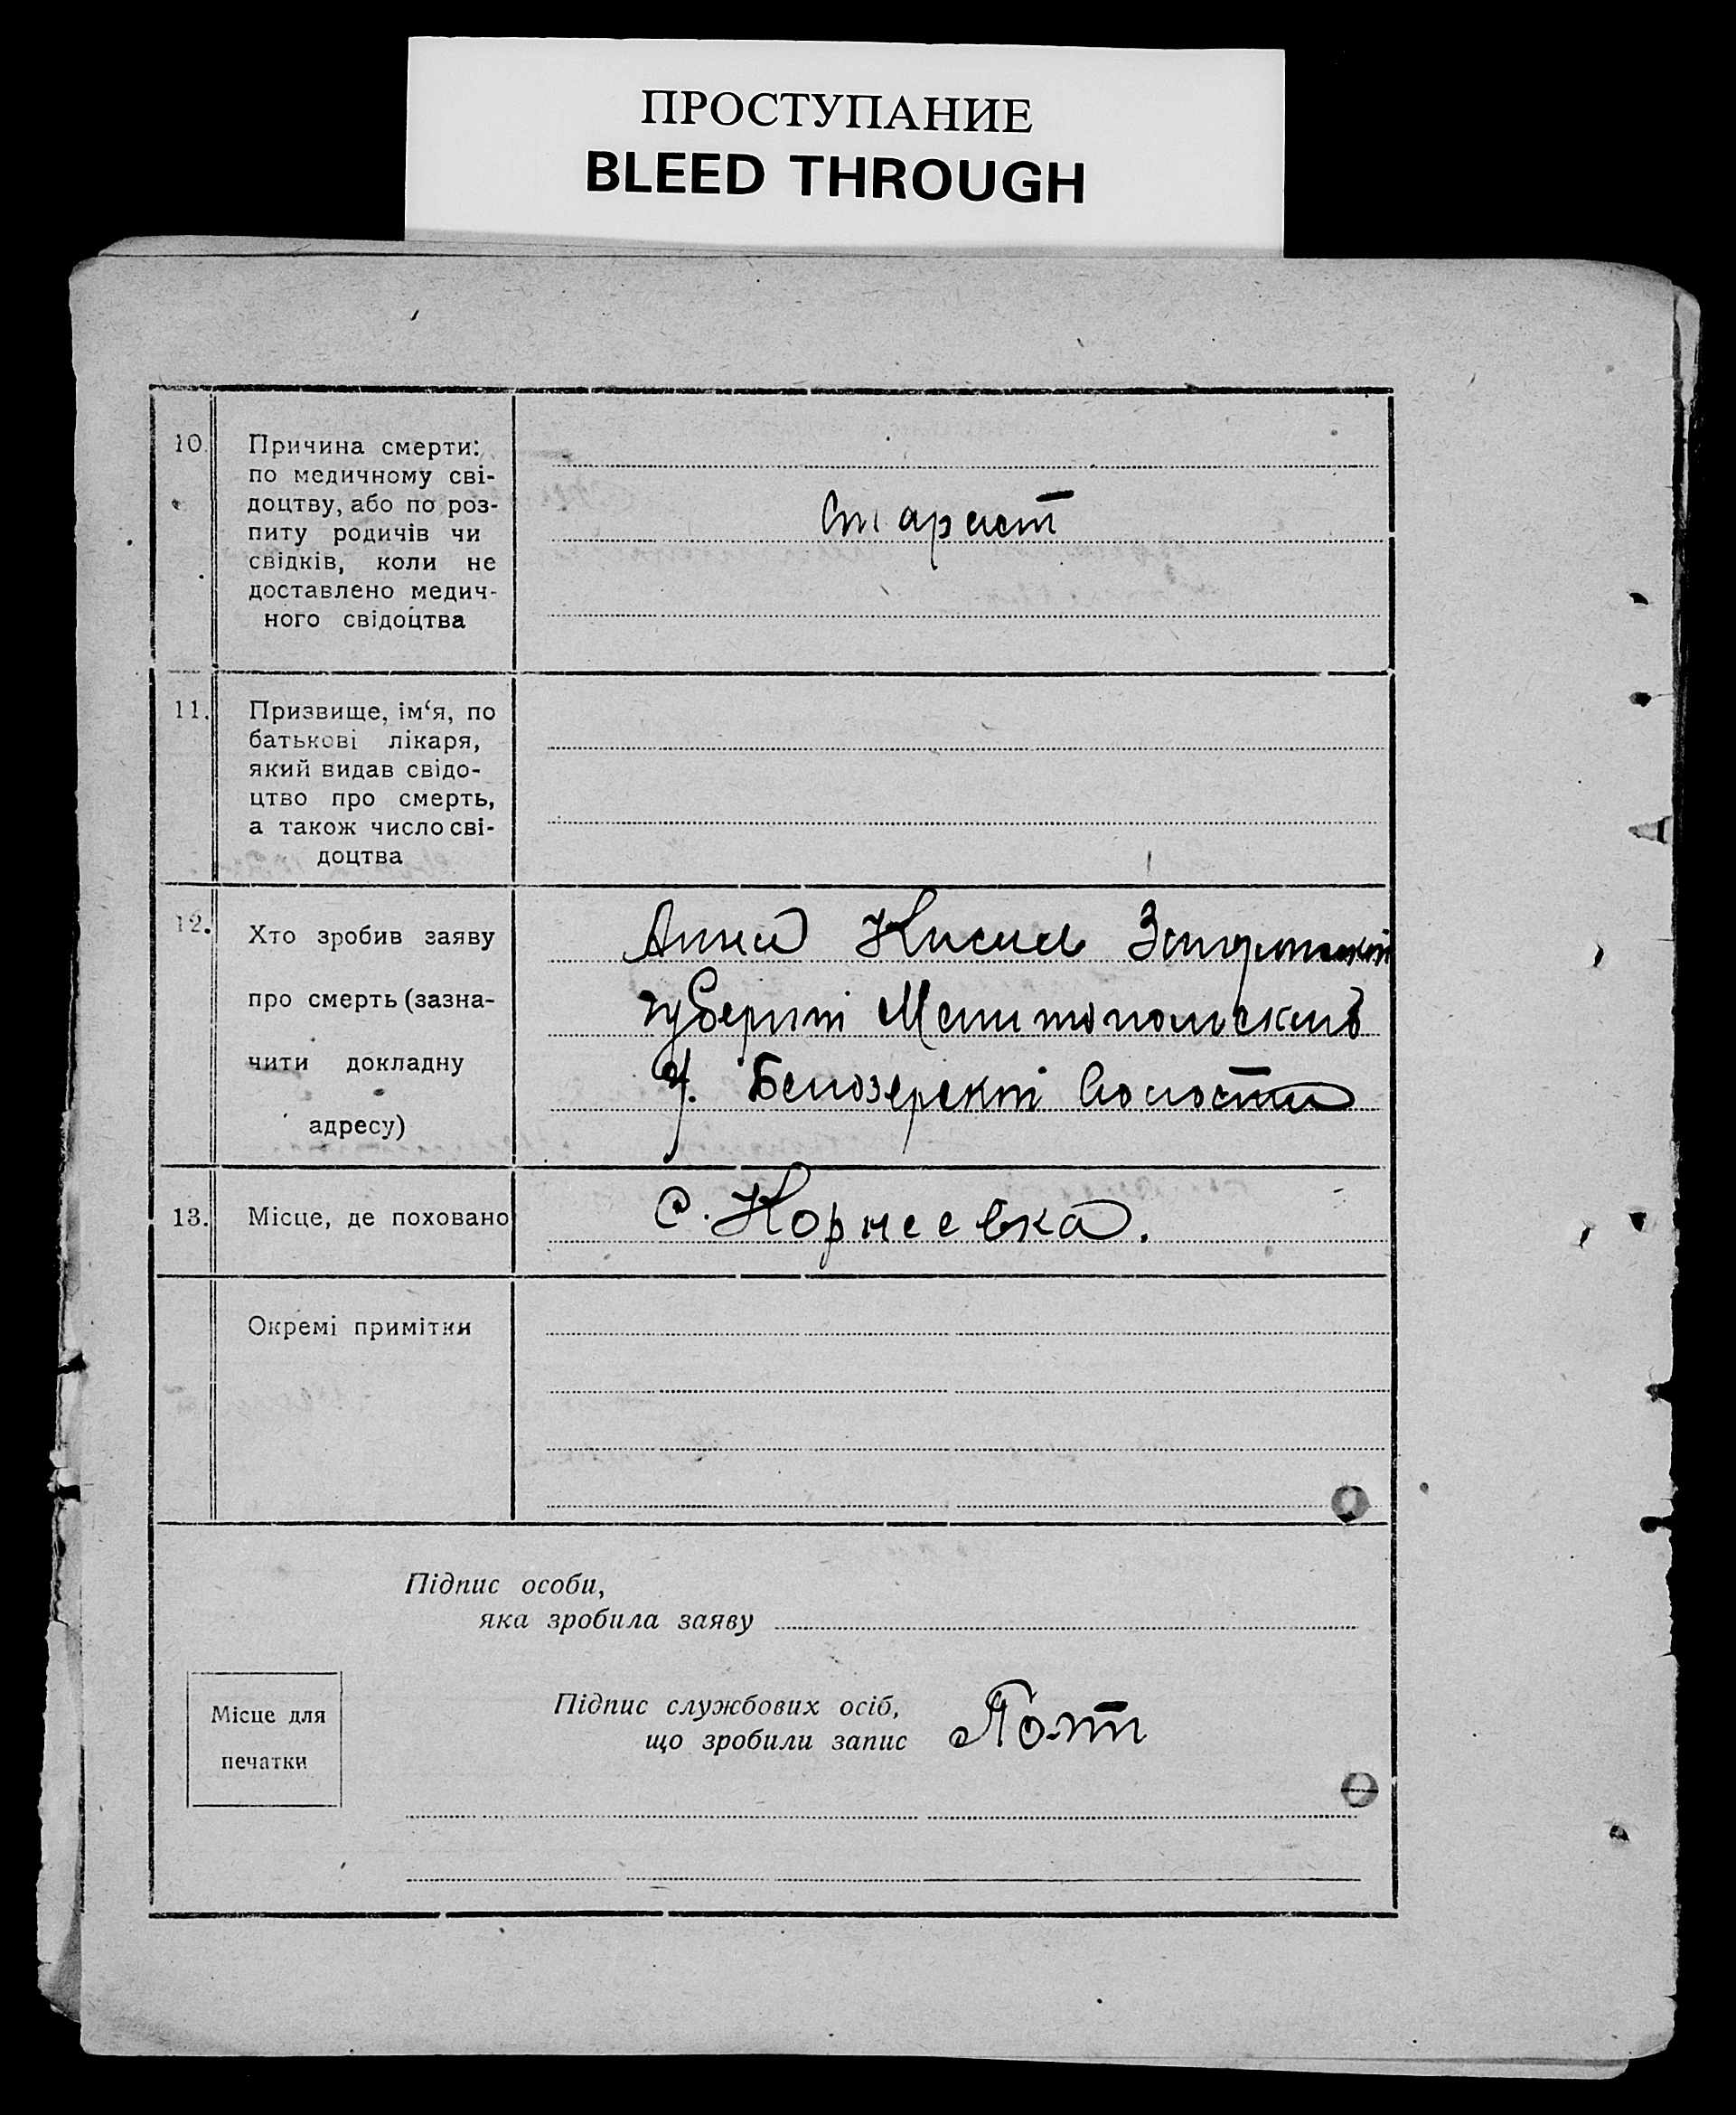 ПРОСТУПАНИЕ
BLEED THROUGH
10. Причина смерти:
по медичному сві-
доцтву, або по роз-
питу родичів чи
свідків, коли не
доставлено медич-
ного свідоцтва
11. Призвище, ім‘я, по
батькові лікаря,
який видав свідо-
цтво про смерть,
а також число сві-
доцтва
12. Хто зробив заяву
про смерть (зазна-
чити докладну
адресу)
Анна Кисил
у. Белозерскоі Волости
13. Місце, де поховано
С. Корнеевка.
Окремі примітки
Підпис особи,
яка зробила заяву
Підпис службових осіб,
що зробили запис
Місце для
печатки